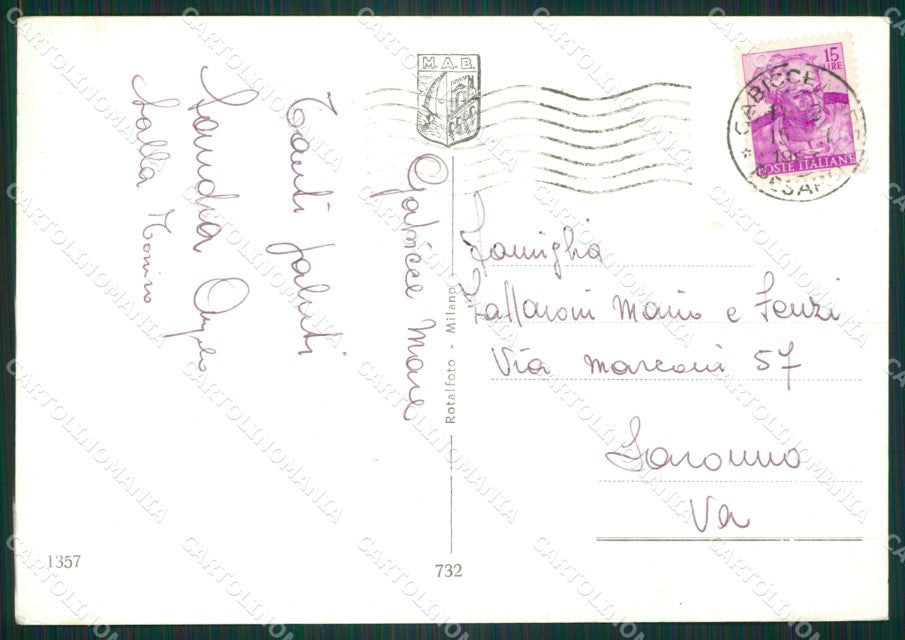 Gabicce Mare
Tanti saluti
Sandra Angelo
Lalla Tonino
M.A.B.
15
LIRE
POSTE ITALIANE
GABICCE
PESARO
Famiglia
Mario e
Via Marconi 57
Saronno
Va
Rotalfoto - Milano
1357
732
CARTOLINOMANIA